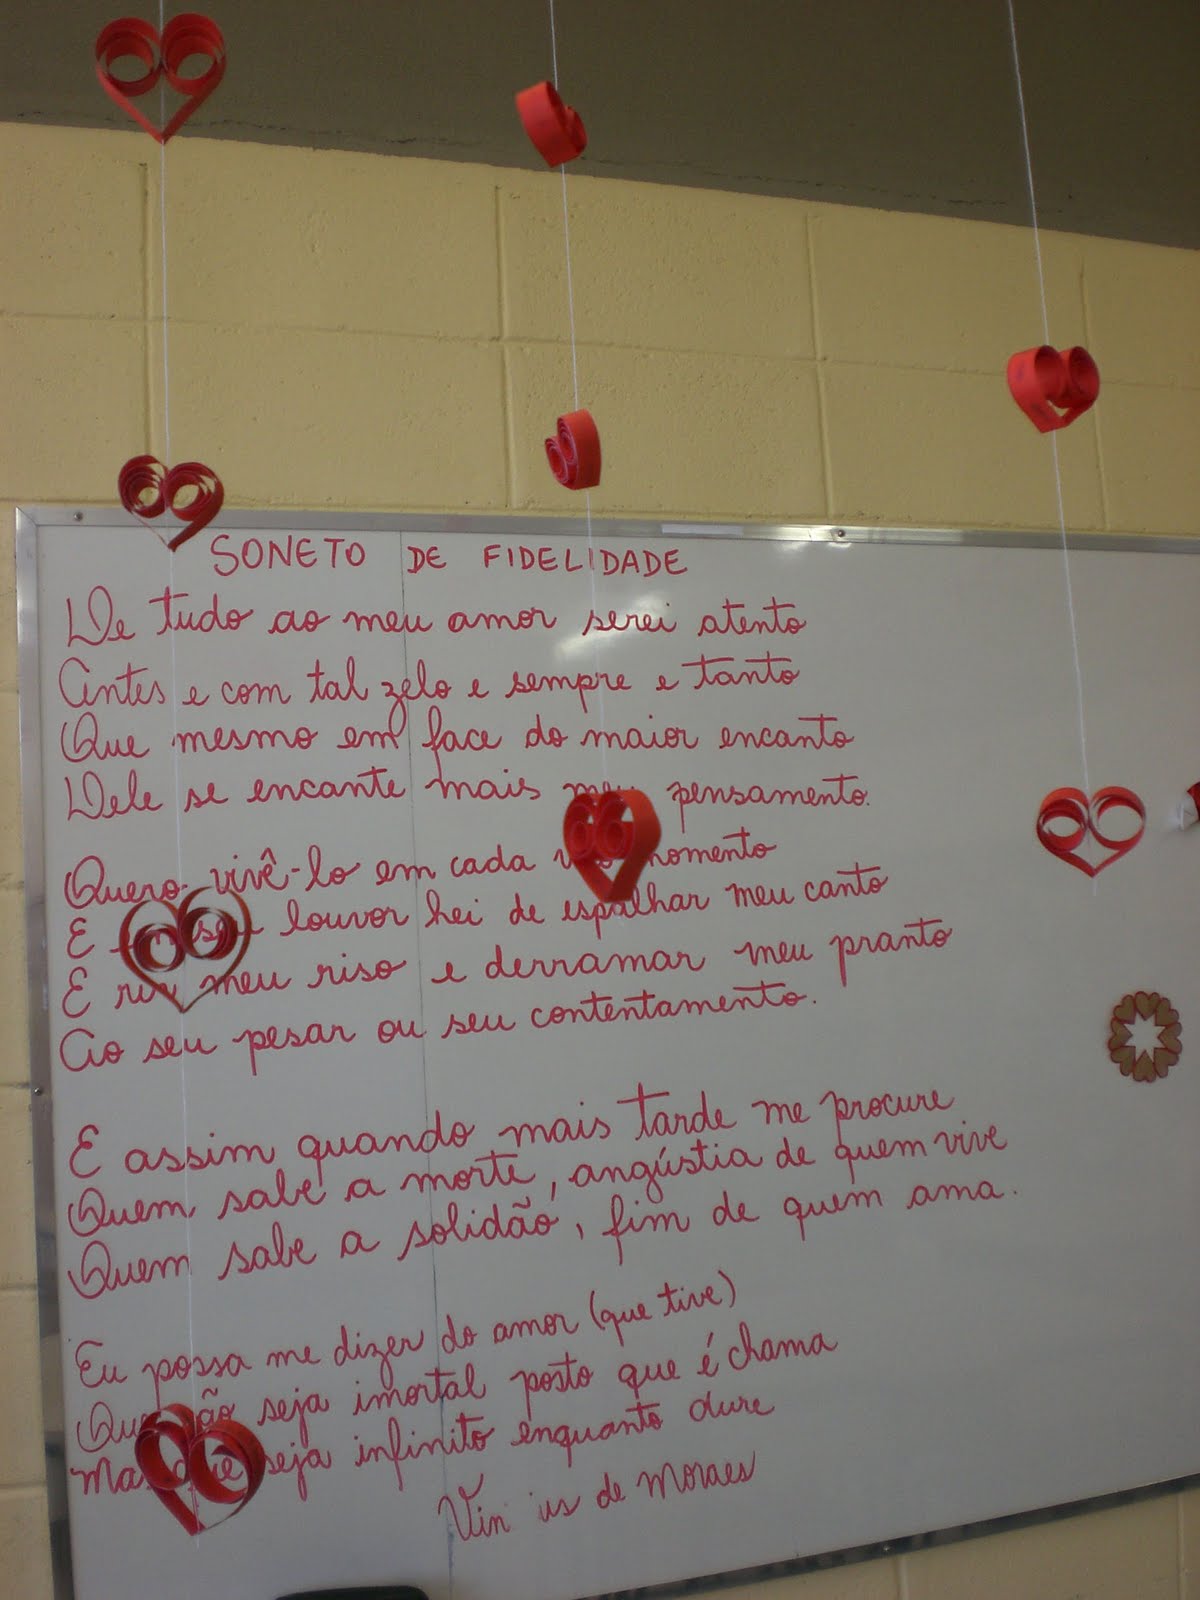 SONETO DE FIDELIDADE
De tudo ao meu amor serei atento
Antes e com tal zelo e sempre e tanto
Que mesmo em face do maior encanto
Dele se encante mais meu pensamento.
Quero vivê-lo em cada momento
E seu louvor hei de espalhar meu canto
E rir meu riso e derramar meu pranto
Ao seu pesar ou seu contentamento.
E assim quando mais tarde me procure
Quem sabe a morte, angústia de quem vive
Quem sabe a solidão, fim de quem ama.
Eu possa me dizer do amor (que tive)
Que não seja imortal posto que é chama
Mas que seja infinito enquanto dure
Vinicius de Moraes